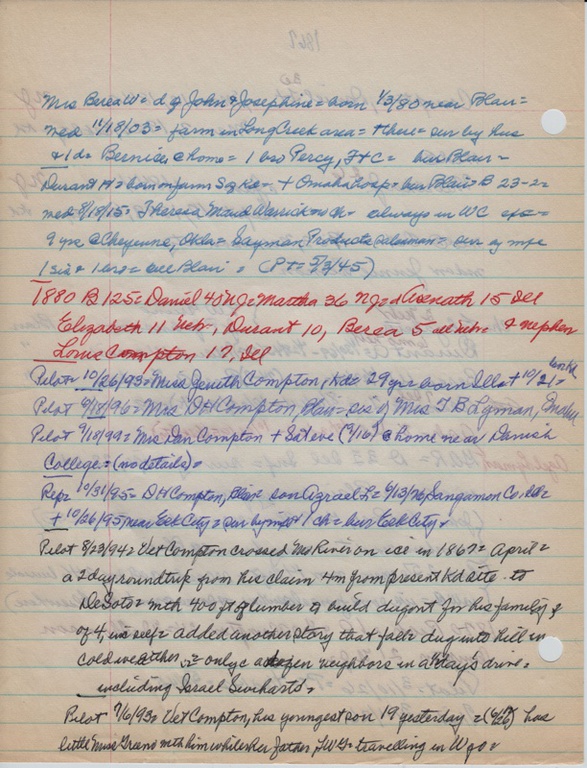 1867
Mrs Berea W = d of John & Josephine = born 1/3/80 near Blair =
med 11/18/03 = farm in Long Creek area = + there = sur by hus
& 1 da Bernice, @ home = 1 bro Percy, Ft C = bur Blair =
Durant H = born on farm S of Kd = + Omaha hosp = bur Blair = B 23-2 =
med 8/18/15 = Theresa Maud Warrick = ch = always in WC exc =
9 yrs @ Cheyenne, Okla = Sayman Products salesman = sur by
1 sis & 1 bro = all Blair = (PT = 5/3/45)
1880 B 125 = Daniel 40 NJ = Martha 36 NJ = Asenath 15 Ill
Elizabeth 11 Nebr, Durant 10, Berea 5 all Nebr & nephew
Louis Compton 17, Ill
Pilot = 10/26/93 = Miss Jenith Compton, Kd = 29 yrs = born Ill = + 10/21 =
Pilot 9/18/96 = Mrs DH Compton, Blair = sis of Mrs T B Lyman,
Pilot 9/18/99 = Mrs Dan Compton + Sat eve (9/16) @ home near Danish
College = (no details) =
Rep = 10/31/95 = DH Compton, Blair son Azrael L = 6/13/76 Sangamon Co. Ill =
+ 10/26/95 near Elk City = sur by & 1 ch = bur Elk City =
Pilot 8/23/94 = Vet Compton crossed Mo River on ice in 1867 = April =
a 2 day roundtrip from his claim 4 m from present Kd site to
DeSoto = with 400 ft of lumber to build dugout for his family
of 4, added another story that fall = dug into hill in
cold weather = only a dozen neighbors in a "day's drive =
including Israel Swihart's =
Pilot 7/6/93 = Vet Compton, his youngest son 19 yesterday = has
little Miss Greeno with him while her father, travelling in Wyo =